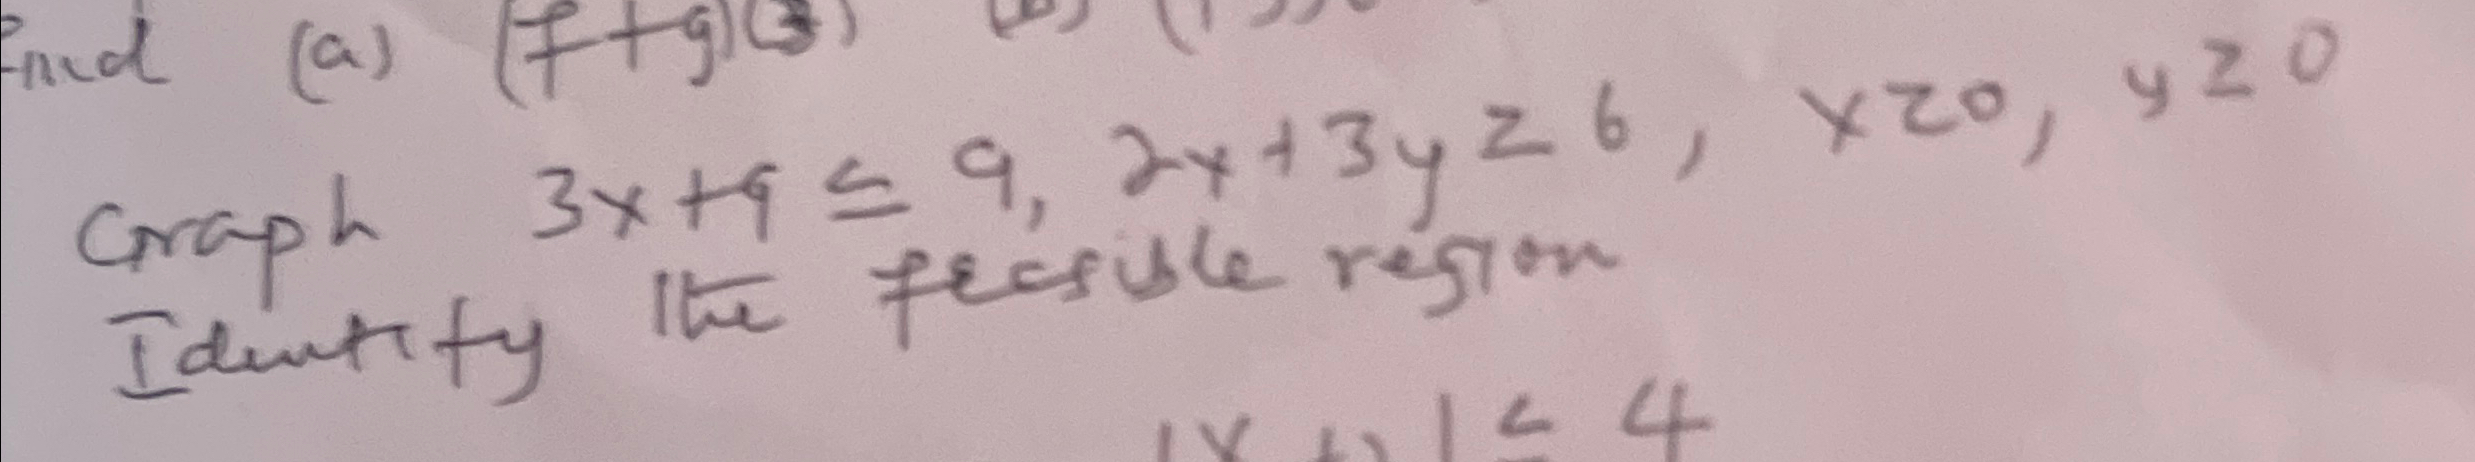 Find (a) (f+g)(3) (b)
Graph 3x+9 ≤ 9, 2x+3y ≥ 6, x≥0, y≥0
Identify the feasible region
≤ 4